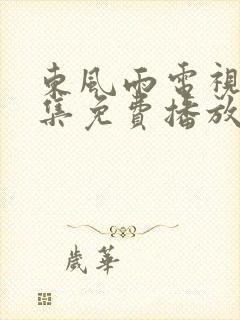 東風雨電視
集免費播放
歲華